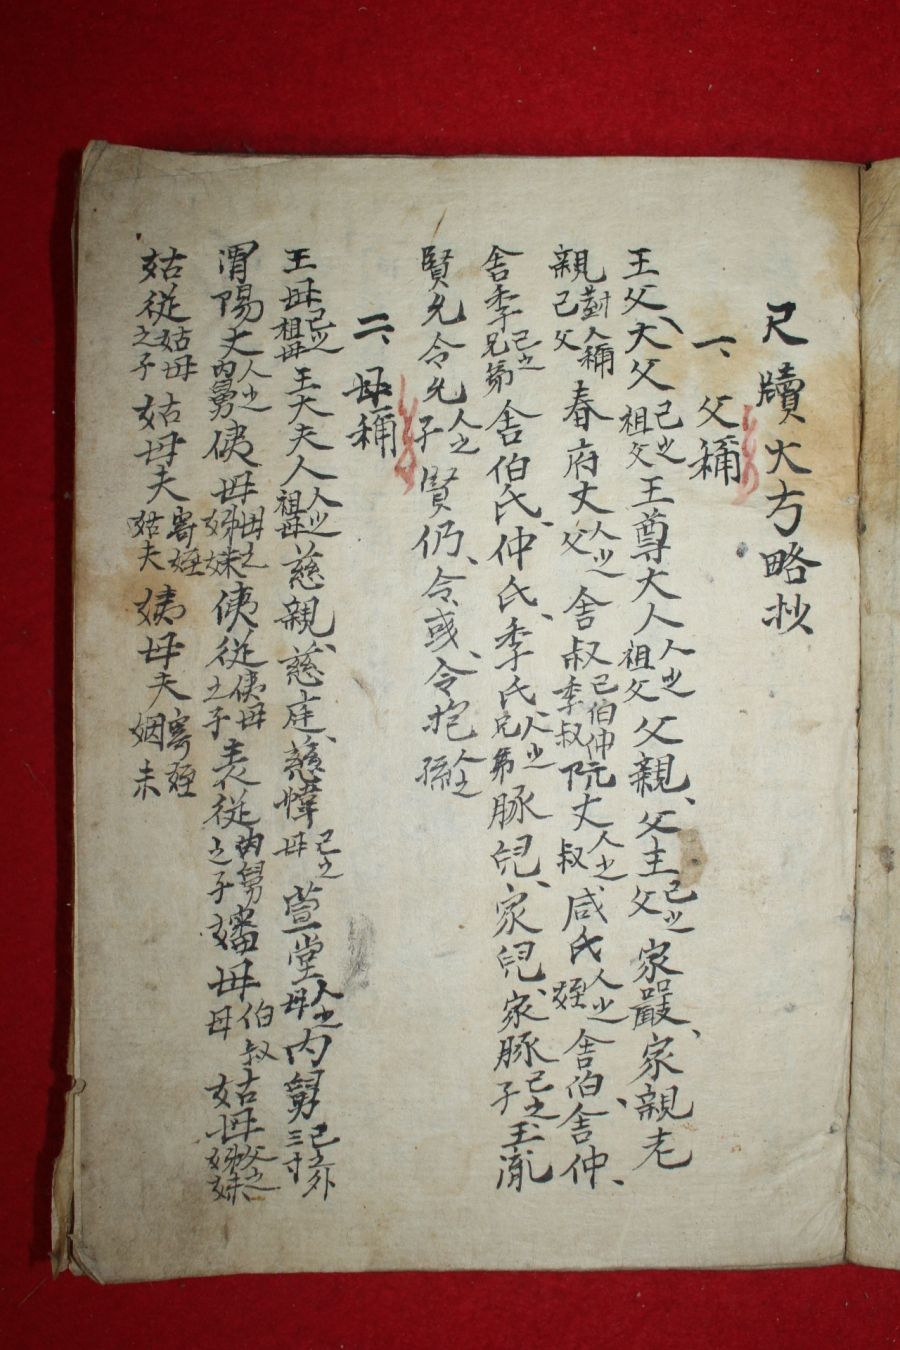 尺牘大方略抄
一、父稱
王父、大父己之祖父王尊大人人之祖父父親、父主己之父家嚴、家親老
親對人稱己父春府丈人之父舍叔己伯仲季叔阮丈人之叔咸氏人之姪舍伯、舍仲、
舍季己之兄弟舍伯氏、仲氏、季氏人之兄弟豚兒、家兒、家豚己之子玉胤
賢允令允人之子賢仍、令或、令抱人之孫
二、母稱
王母己之祖母王大夫人人之祖母慈親、慈庭、慈幃己之母萱堂人之母內舅己之外三寸
渭陽丈人之內舅姨母母之姊妹姨從姨母之子表從內舅之子嬸母伯叔母姑母父之姊妹
姑從姑母之子姑母夫寄姪姑夫姨母夫寄姪姻末